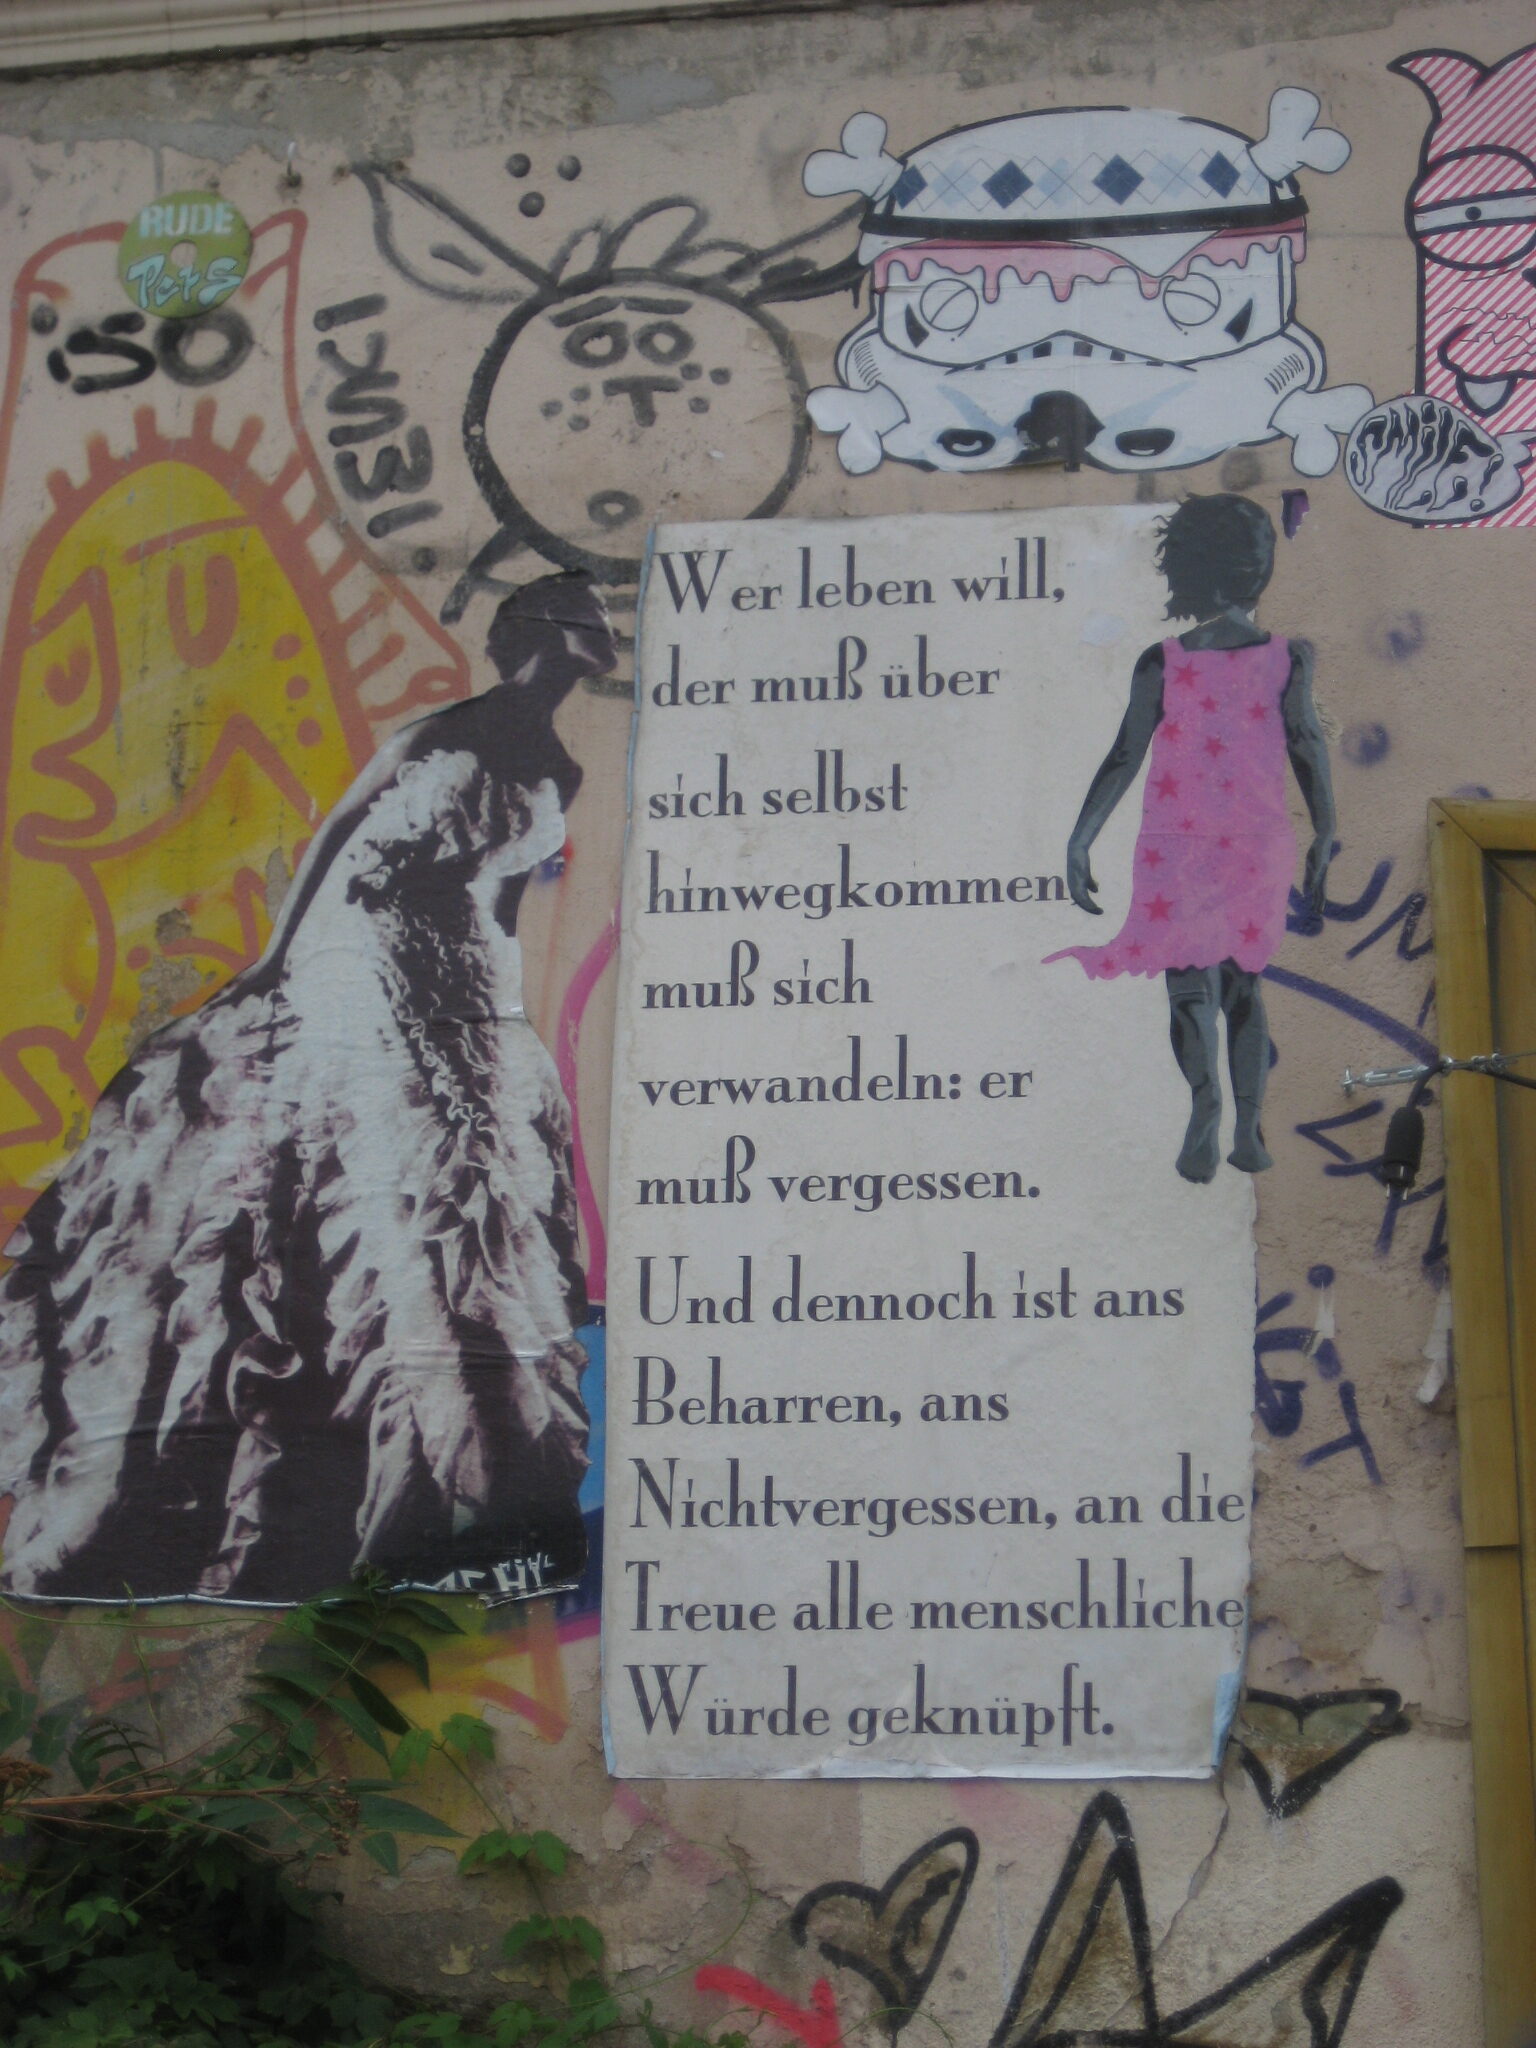 RUDE
Pets
iSO
SMiLE
Wer leben will,
der muß über
sich selbst
hinwegkommen,
muß sich
verwandeln: er
muß vergessen.
Und dennoch ist ans
Beharren, ans
Nichtvergessen, an die
Treue alle menschliche
Würde geknüpft.